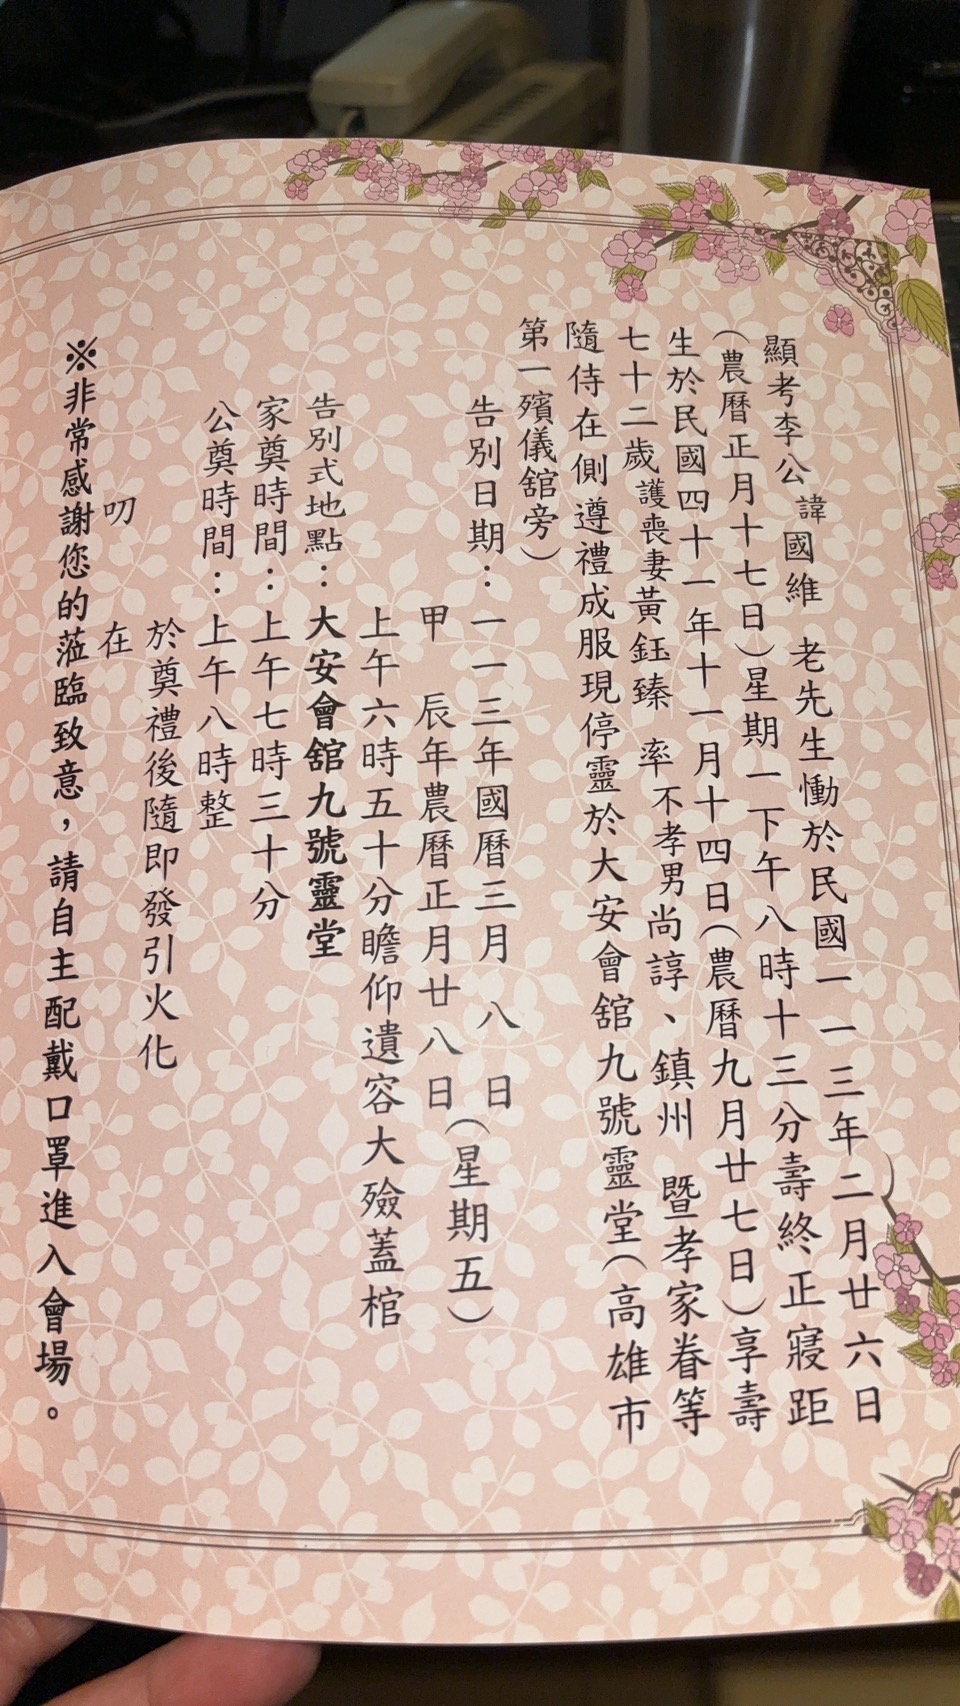 顯考李公諱國維老先生慟於民國一一三年二月廿六日
(農曆正月十七日)星期一下午八時十三分壽終正寢距
生於民國四十一年十一月十四日(農曆九月廿七日)享壽
七十二歲護喪妻黃鈺臻 率不孝男尚諄、鎮州 暨孝家眷等
隨侍在側遵禮成服現停靈於大安會舘九號靈堂(高雄市
第一殯儀舘旁)
告別日期:一一三年國曆三月 八 日(星期五)
甲 辰年農曆正月廿八日
上午六時五十分瞻仰遺容大殮蓋棺
告別式地點:大安會舘九號靈堂
家奠時間:上午七時三十分
公奠時間:上午八時整
於奠禮後隨即發引火化
叨 在
※非常感謝您的蒞臨致意,請自主配戴口罩進入會場。